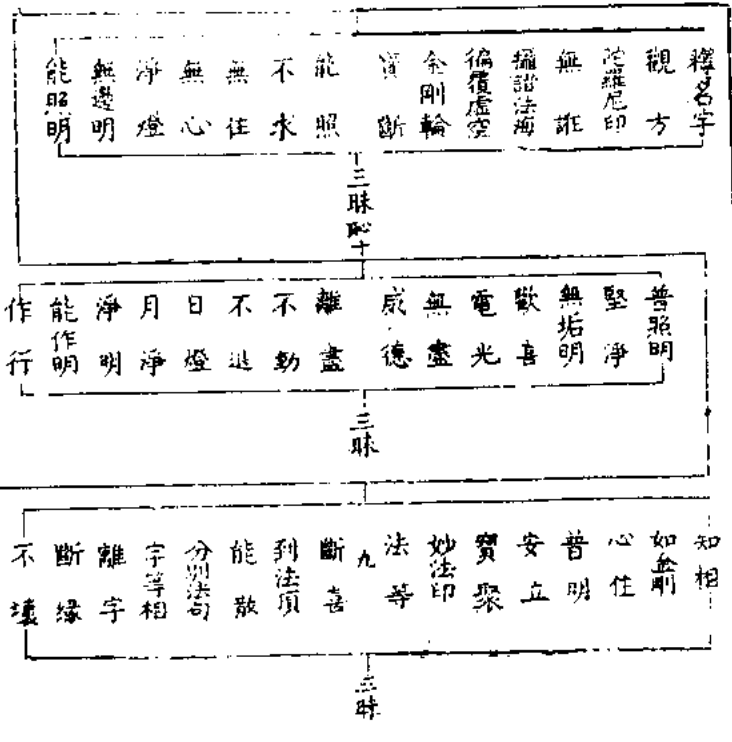 釋名字
觀方
陀羅尼印
無誑
攝諸法海
徧覆虛空
金剛輪
寶斷
能照
不求
無住
無心
淨燈
無邊明
能照明
三昧
十
普照明
堅淨
無垢明
歡喜
電光
無盡
威德
離盡
不動
不退
日燈
月淨
淨明
能作明
作行
三昧
知相
如金剛
心住
普明
安立
寶聚
妙法印
法等
九
斷喜
到法頂
能散
分別法句
字等相
離字
斷緣
不壞
三昧